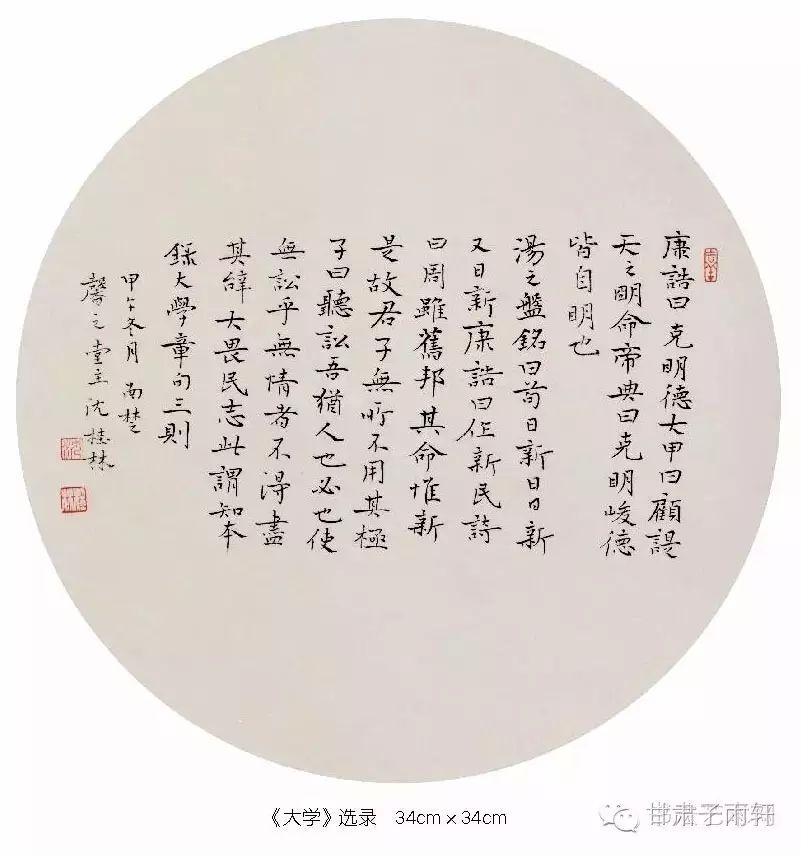 康誥曰克明德大甲曰顧諟
天之明命帝典曰克明峻德
皆自明也
湯之盤銘曰苟日新日日新
又日新康誥曰作新民詩
曰周雖舊邦其命惟新
是故君子無所不用其極
子曰聽訟吾猶人也必也使
無訟乎無情者不得盡
其辭大畏民志此謂知本
錄大學章句三則
甲午冬月南楚
馨之堂主沈桂林
《大学》选录 34cm x 34cm
邯肃子雨轩